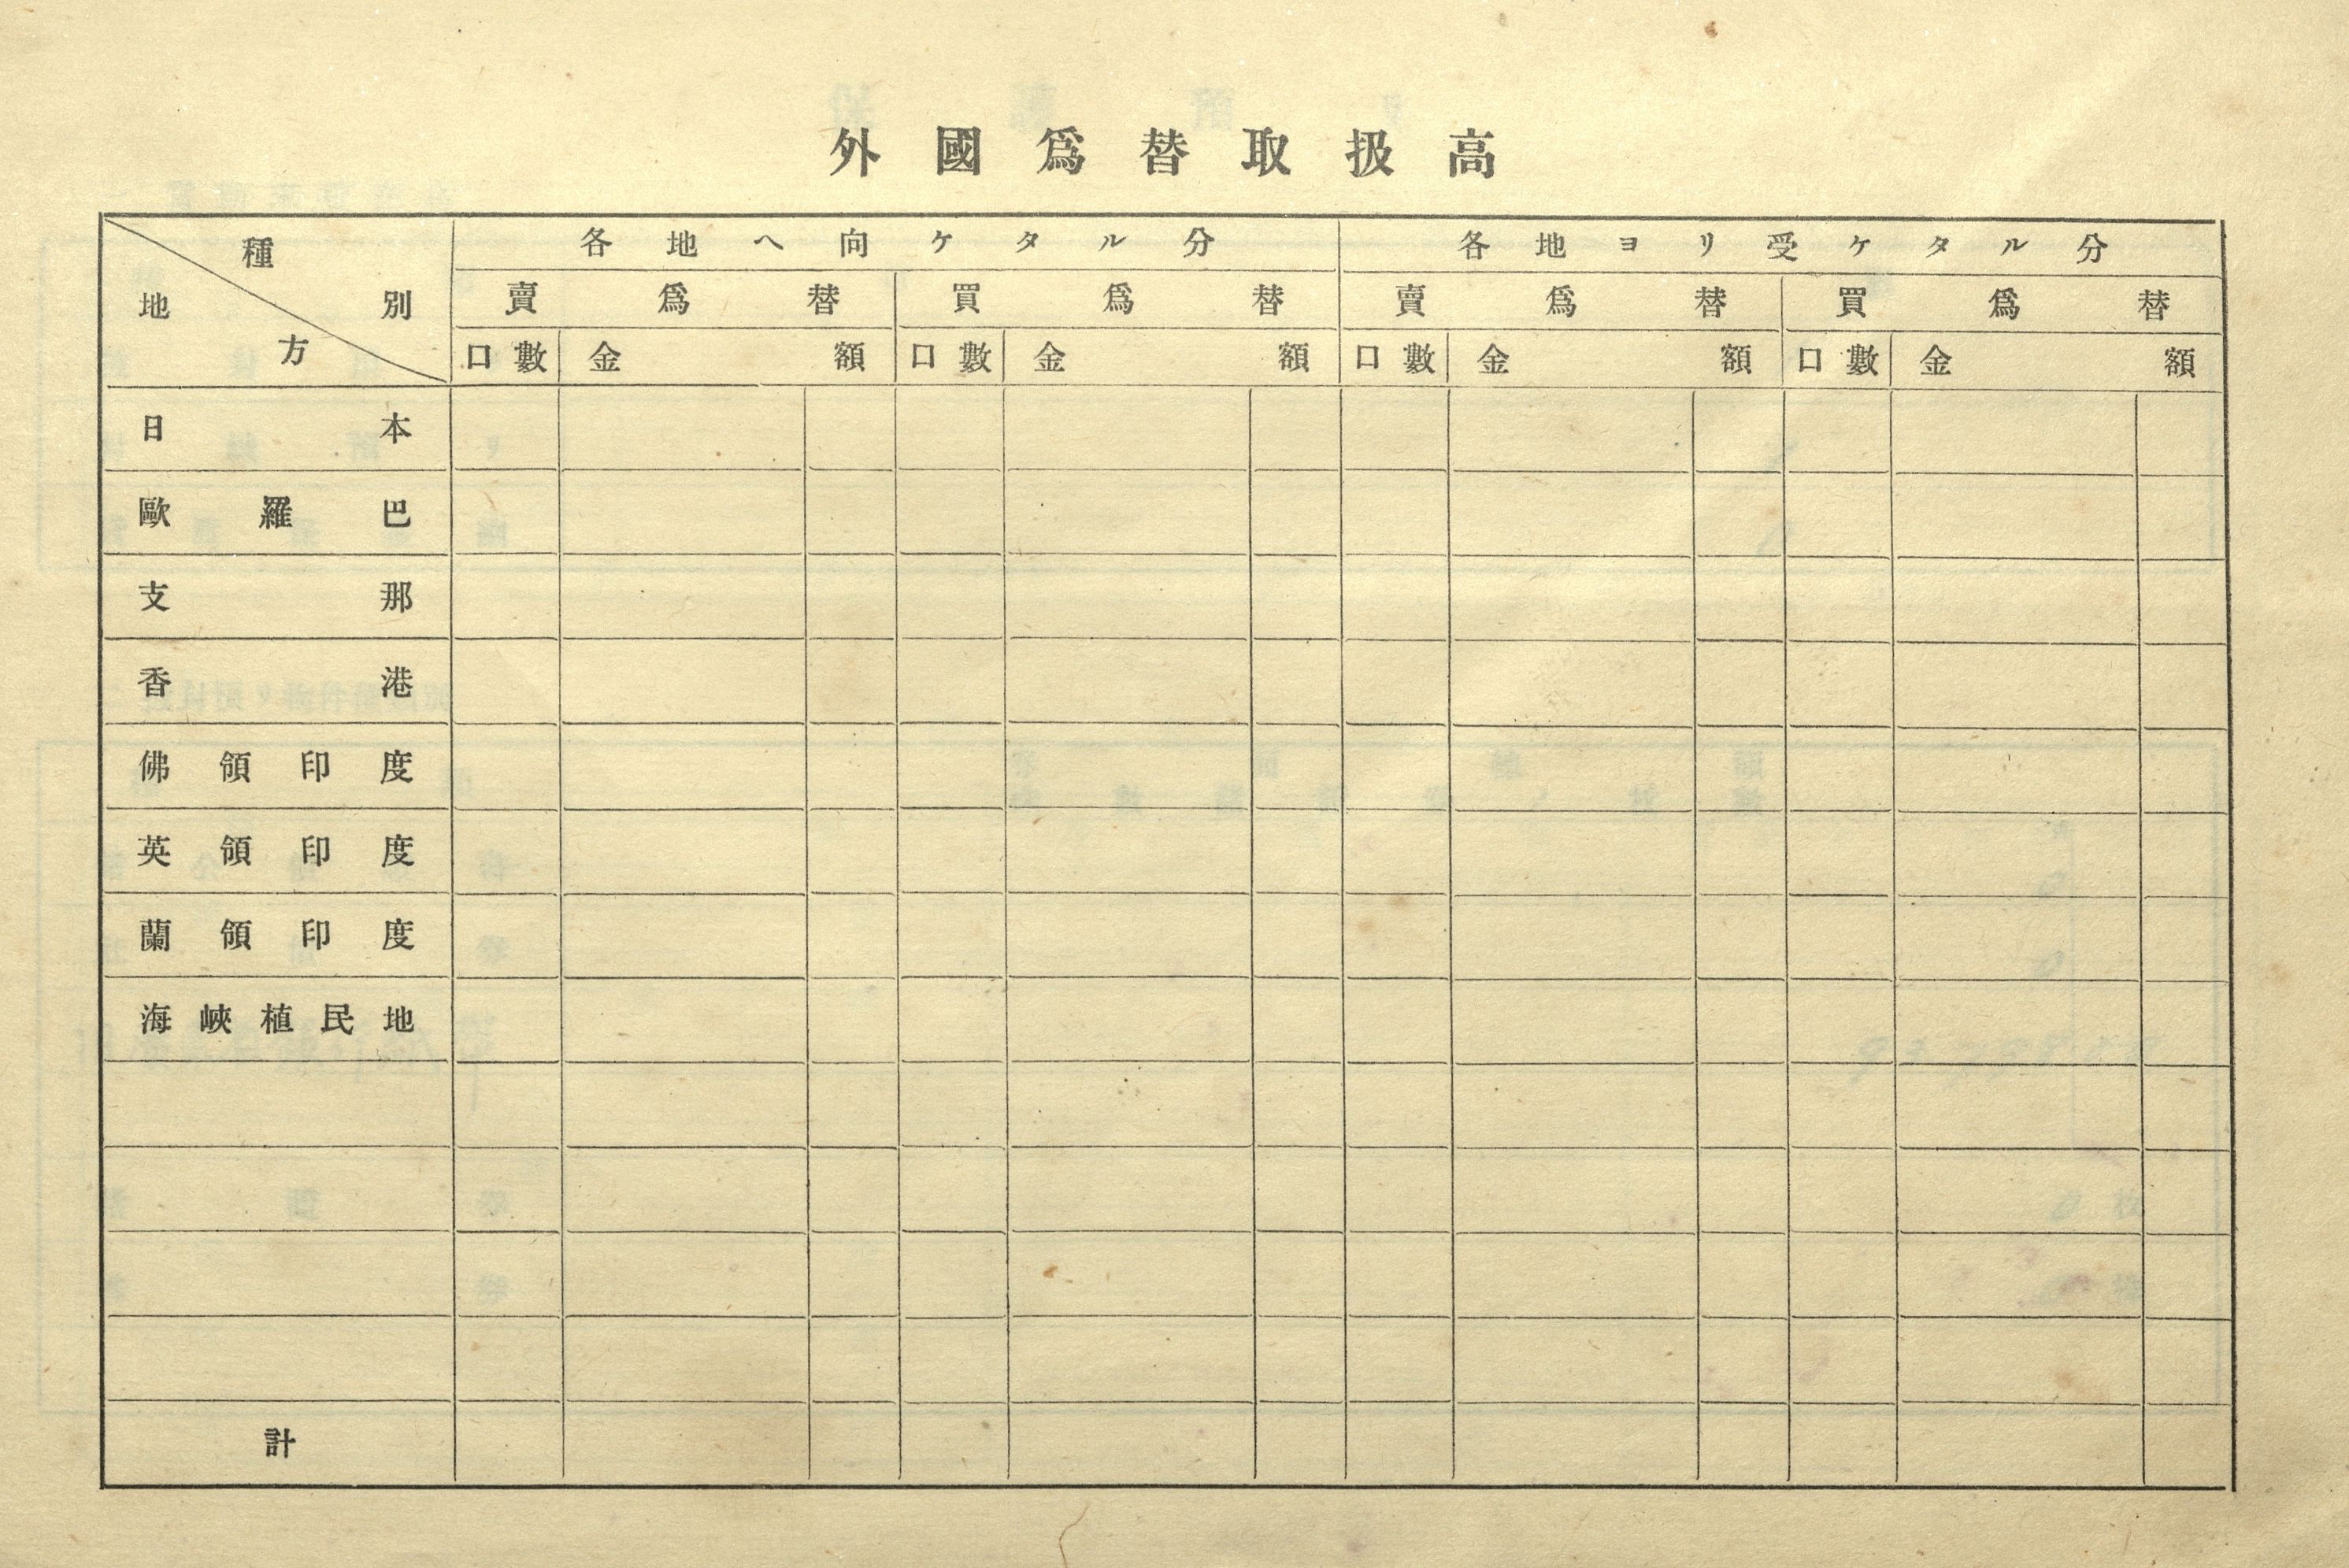 外國爲替取扱高
種別 各地ヘ向ケタル分 各地ヨリ受ケタル分
地方 賣爲替 買爲替 賣爲替 買爲替
口數 金額 口數 金額 口數 金額 口數 金額
日本
歐羅巴
支那
香港
佛領印度
英領印度
蘭領印度
海峽植民地
計